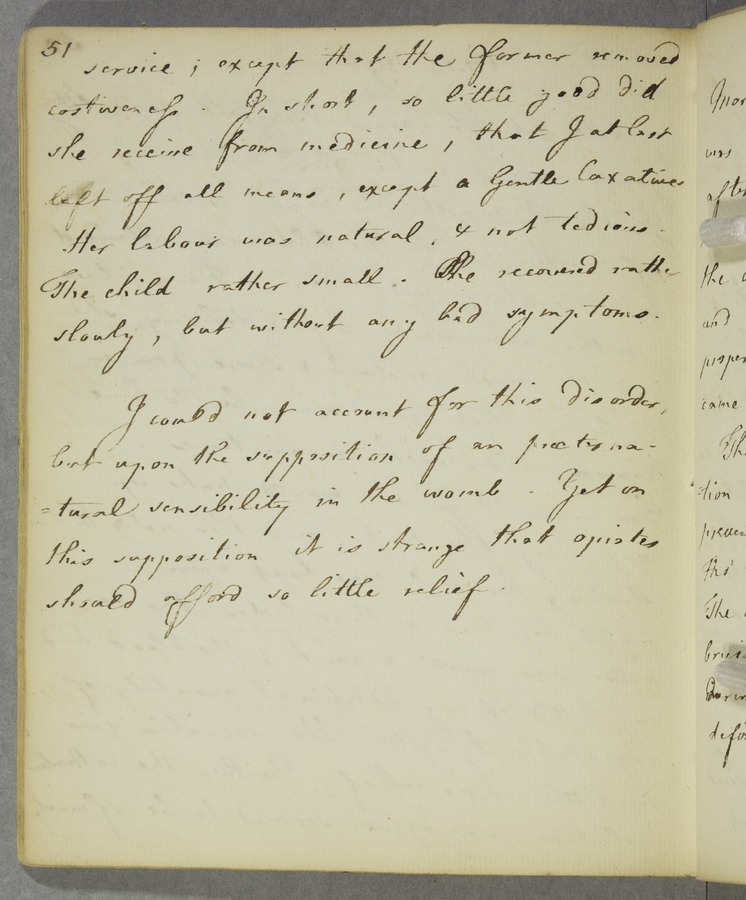 51
service ; except that the former removed
costiveness . In short , so little good did
she receive from medicine , that I at last
left off all means , except a Gentle laxatives
Her labour was natural , & not tedious .
The child rather small . She recovered rathe
slowly , but without any bad symptoms .
I could not account for this disorder,
but upon the supposition of an præterna-
=tural sensibility in the womb . Yet on
this supposition it is strange that opiates
should afford so little relief .
was
the
and
came
=tion
The